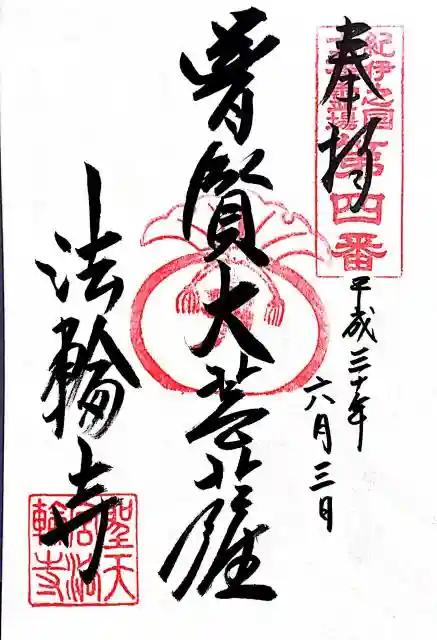 奉拝
紀伊之国
十三仏霊場
第四番
平成三十年
六月三日
普賢大菩薩
法輪寺
聖天宮法輪寺